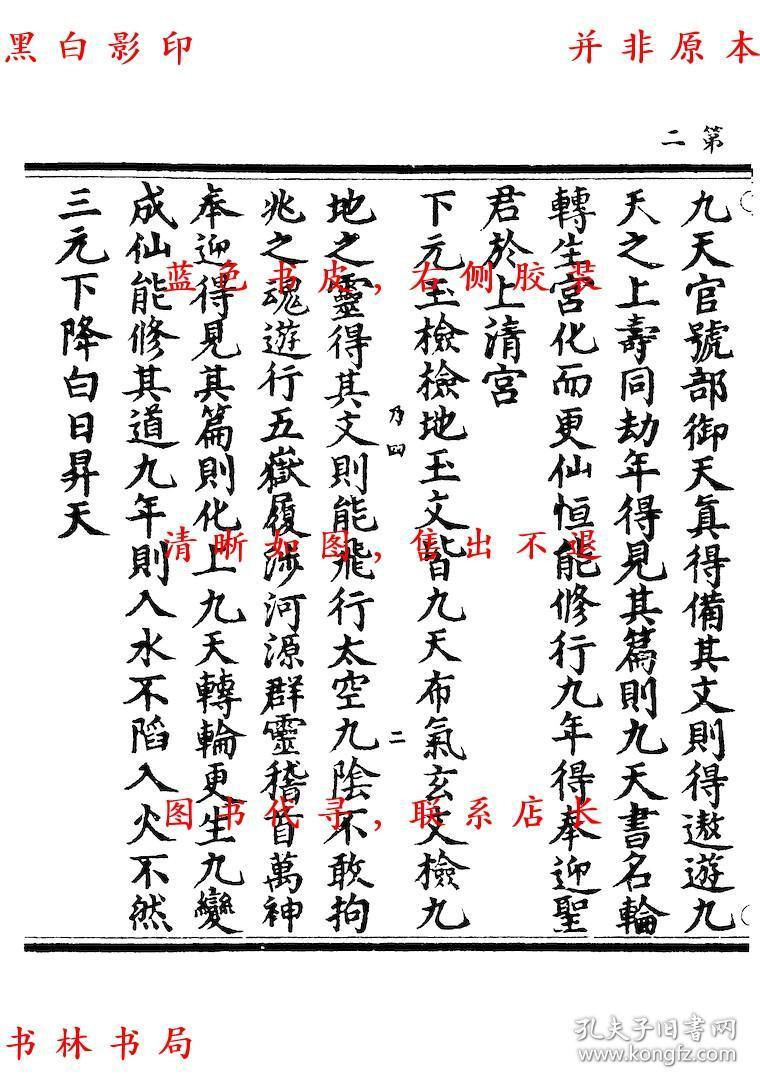 黑白影印
并非原本
第二
九天官號部御天真得備其文則得遨遊九
天之上壽同劫年得見其篇則九天書名輪
轉生宮化而更仙恒能修行九年得奉迎聖
君於上清宮
下元玉檢檢地玉文皆九天布氣玄文檢九
乃四
二
地之靈得其文則能飛行太空九陰不敢拘
兆之魂遊行五嶽履涉河源群靈稽首萬神
奉迎得見其篇則化上九天轉輪更生九變
成仙能修其道九年則入水不陷入火不然
三元下降白日昇天
蓝色书皮,右侧胶装
清晰如图,售出不退
图书代寻,联系店长
书林书局
孔夫子旧书网
www.kongfz.com